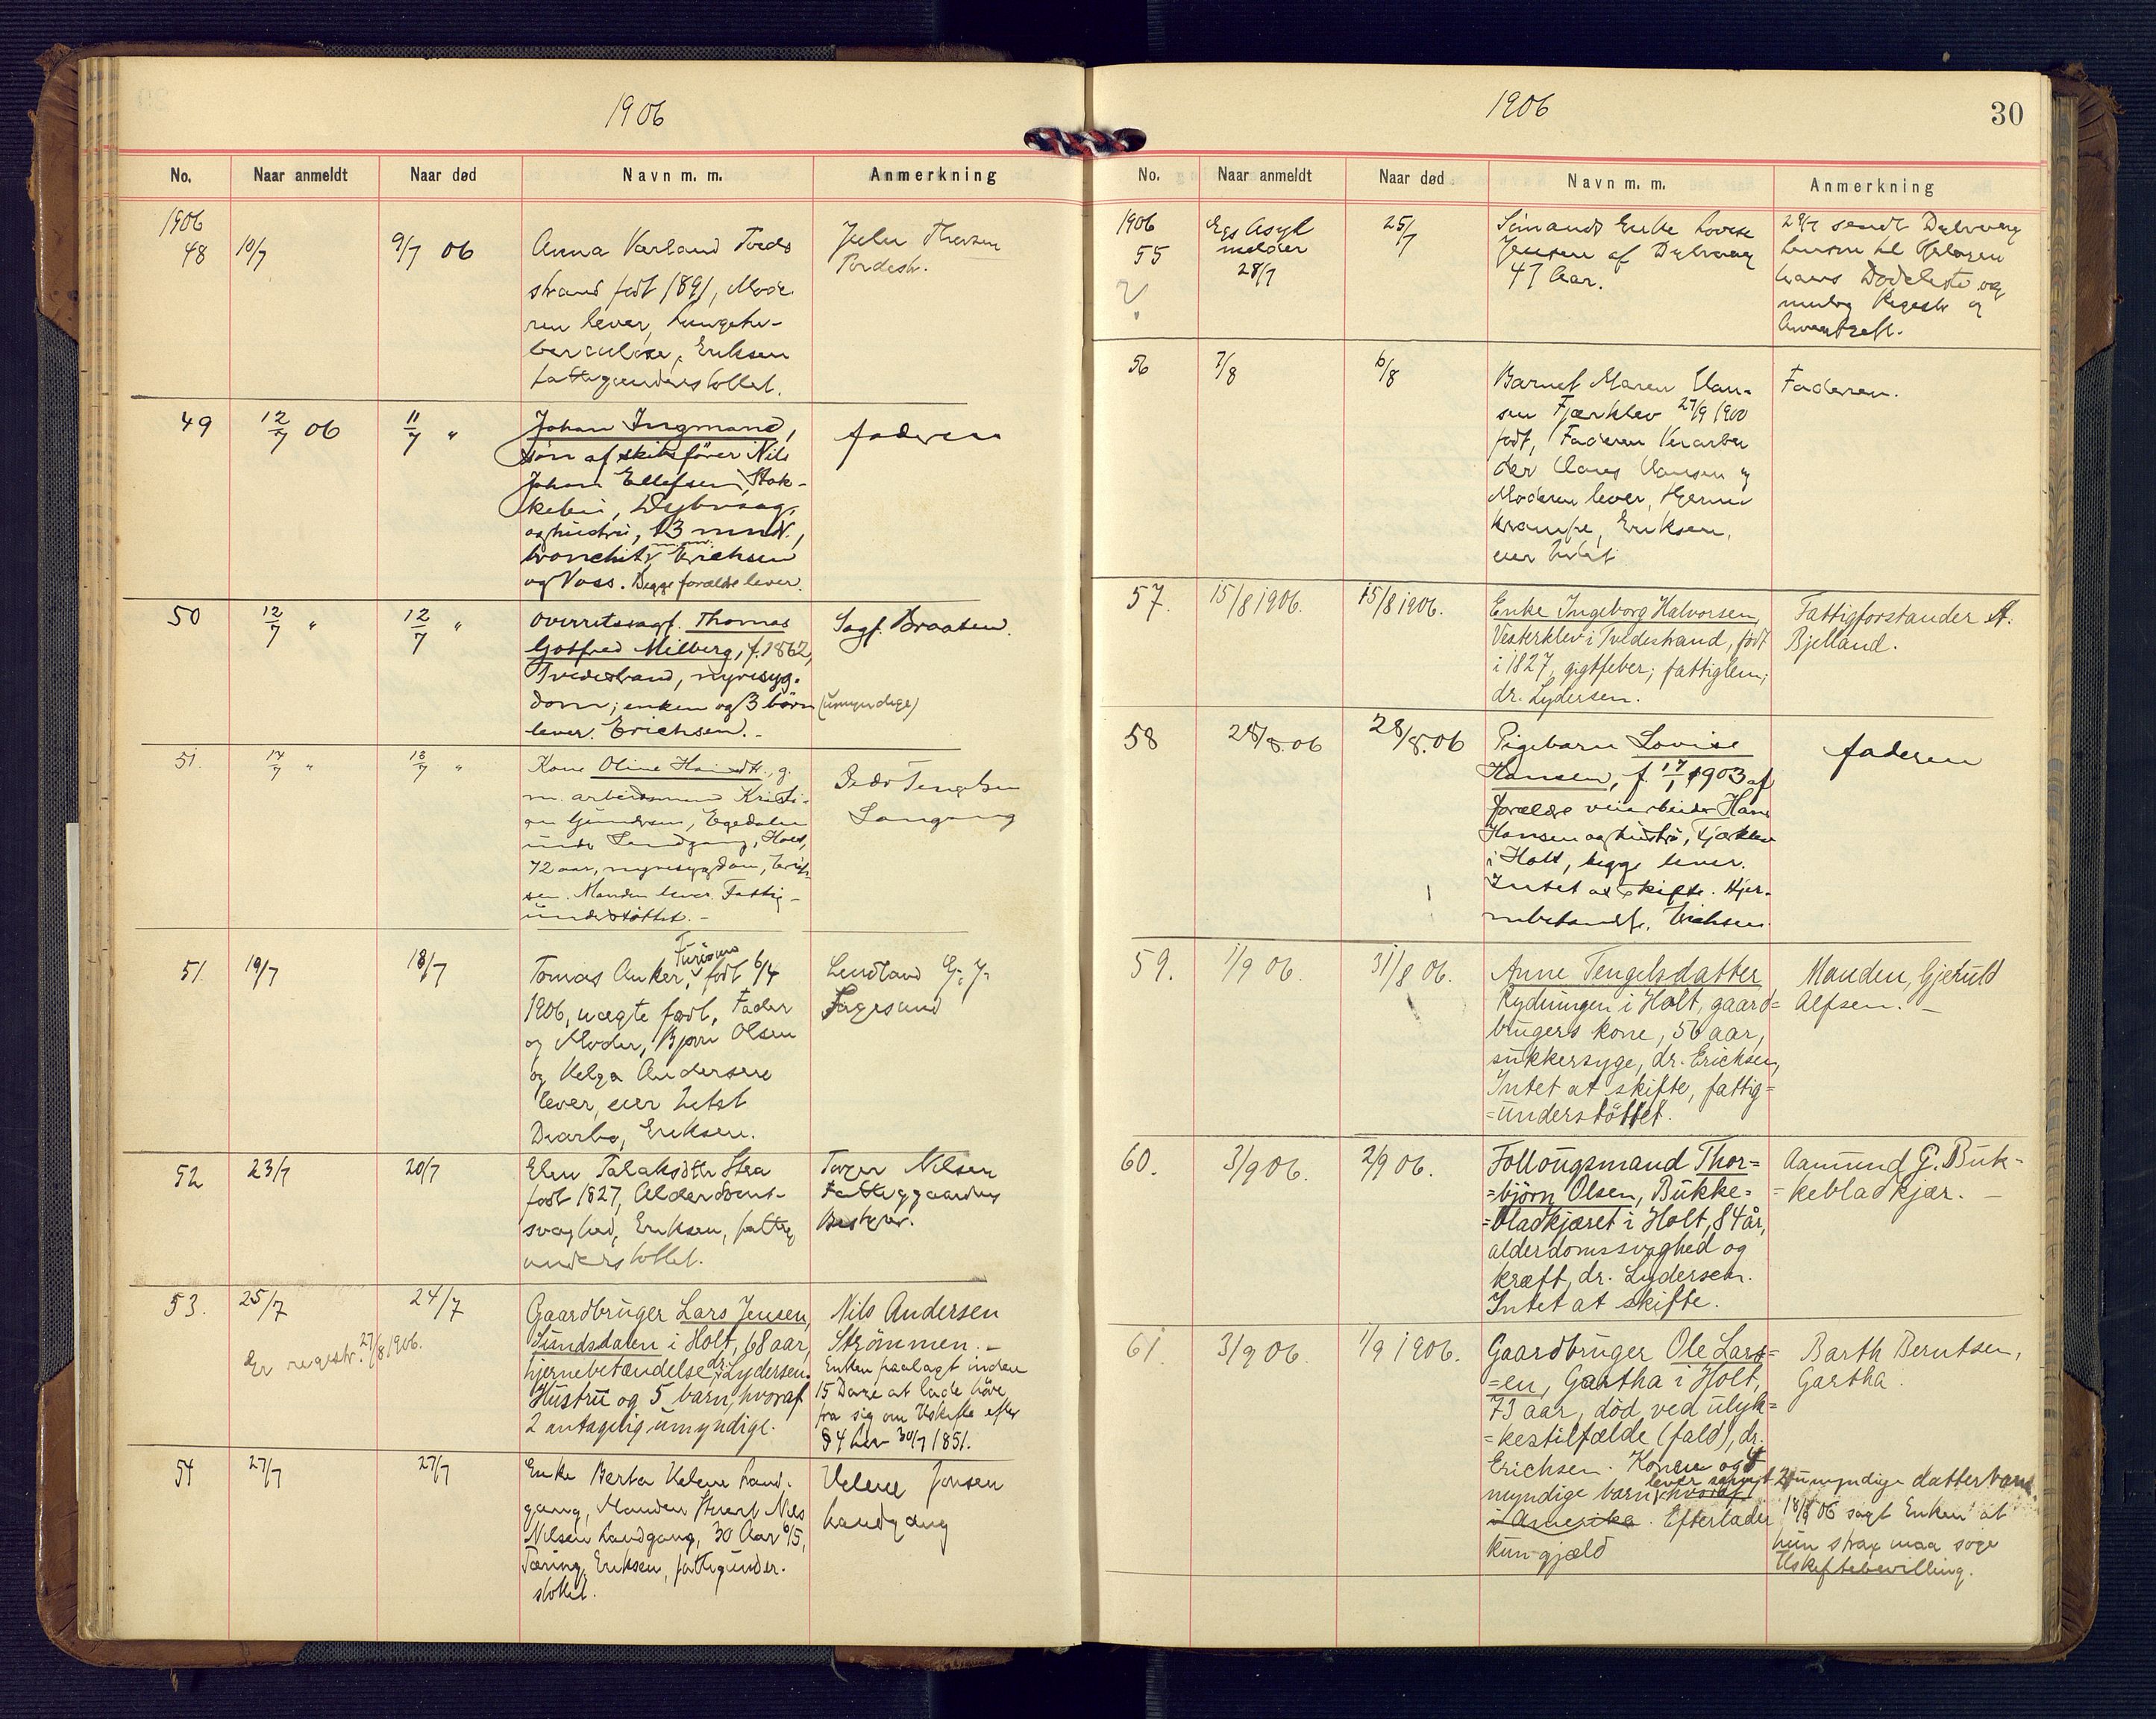 1906
No.
Naar anmeldt
Naar død
Navn m. m.
Anmerkning
1906
48
10/7
9/7 06
Anna Værland Tvede
strand født 1891, Mode
ren lever, Lungetu-
berculose, Eriksen
fattigunderstöttet.
49
12/7 06
11/7 "
Johan Ingmand,
sön af skibsförer Nils
Johan Ellefsen, Stok-
kebú, Dybvaag,
og hustrú, 13 mnd.,
bronchit, Erichsen
og Voss. Begge forældre lever.
faderen
50
12/7 "
12/7 "
Overretssagf. Thomas
Gotfred Milberg, f. 1862,
Tvedestrand, nyresyg-
dom; enken og 3 börn (umyndige)
lever. Erichsen. -
Sagf. Braaten.
51.
14/7 "
13/7 "
Kone Oline , g.
m. arbeidsmand Kristi-
an Gundersen, Egedalen
under Landgang, Holt,
72 aar, nyresygdom, Erich-
sen. Manden lever. Fattig-
únderstöttet. -
Peder Tengelsen
Langang
51
19/7
18/7
Tomas Anker, født 6/4
1906, uægte født, Fader
og Moder, Bjørn Olsen
og Helga Andersen
lever, eier Intet
Diarhe, Eriksen.
Lendland G. J.
Fagesund
52
23/7
20/7
Elen Talaksdtr Strea
født 1827, Alderdoms-
svaghed, Eriksen, fattig
understöttet.
Torger Nilsen
Fattiggaardens
Bestyrer.
53.
25/7
24/7
Er registr. 27/8 1906.
Gaardbruger Lars Jensen,
Sundsdalen i Holt, 68 aar,
hjernebetændelse, dr. Lydersen.
Hustrú og 5 barn, hvoraf
2 antagelig úmyndige.
Nils Andersen
Strømmen. -
Enken paalagt inden
15 Dage at lade høre
fra sig om Uskifte efter
§ 4 Lov 30/7 1851.
54
27/7
27/7
Enke Berta Helene Land-
gang, Manden Nils
Nilsen Landgang, 30 Aar 6/5,
Tæring, Eriksen, fattigunder-
støttet.
Helene Jensen
Landgang
1906
30
No.
Naar anmeldt
Naar død
Navn m. m.
Anmerkning
1906
55
Egs Asyl
melder
28/7
25/7
Sömands Enke Lovise
Jensen af Dybvaag
47 Aar.
29/7 sendt Dybvaag
hans Dødsliste og
mulig Registr og
56
7/8
6/8
Barnet Maren Han-
sen Fjærklev 27/9 1900
født, Faderen Veiarbei
der Hans Hansen og
Moderen lever, Hjerne
krampe, Eriksen,
eier Intet
Faderen.
57.
15/8 1906.
15/8 1906.
Enke Ingeborg Halvorsen,
Vesterklev i Tvedestrand, født
i 1827, gigtfeber; fattiglem;
dr. Lydersen.
Fattigforstander A.
Bjelland.
58
28/8. 06
28/8. 06
Pigebarn Lovise
Hansen, f. 17/1 1903 af
forældre veiarbeider Hans
Hansen og hustrú, Fjærklev
i Holt, begge lever.
Intet at skifte. Hjer-
nebetændelse, Erichsen.
faderen
59.
1/9 06.
31/8 06.
Anne Tengelsdatter
Rydningen i Holt, gaard=
brúgers kone, 56 aar,
sukkersyge, dr. Erichsen,
Intet at skifte, fattig=
=únderstöttet.
Manden, Gjeruld
Alfsen. -
60.
3/9 06.
2/9 06.
Follougsmand Thor=
=björn Olsen, Bukke=
=bladkjæret i Holt, 84 år,
alderdomssvaghed og
kræft, dr. Lydersen.
Intet at skifte.
Aamund G. Buk-
=kebladkjær. -
61.
3/9 06.
1/9 1906.
Gaardbruger Ole Lars=
=en, Gaartha i Holt,
73 aar, død ved úlyk=
=kestilfælde (fald), dr.
Erichsen. Konen og 4
myndige barn lever samt 2 umyndige datterbarn.
i Amerika. Efterlader
kun gjæld
Barth Berntsen,
Gartha.
18/9 06 sagt Enken at
hún strax maa søge
Uskiftebevilling.